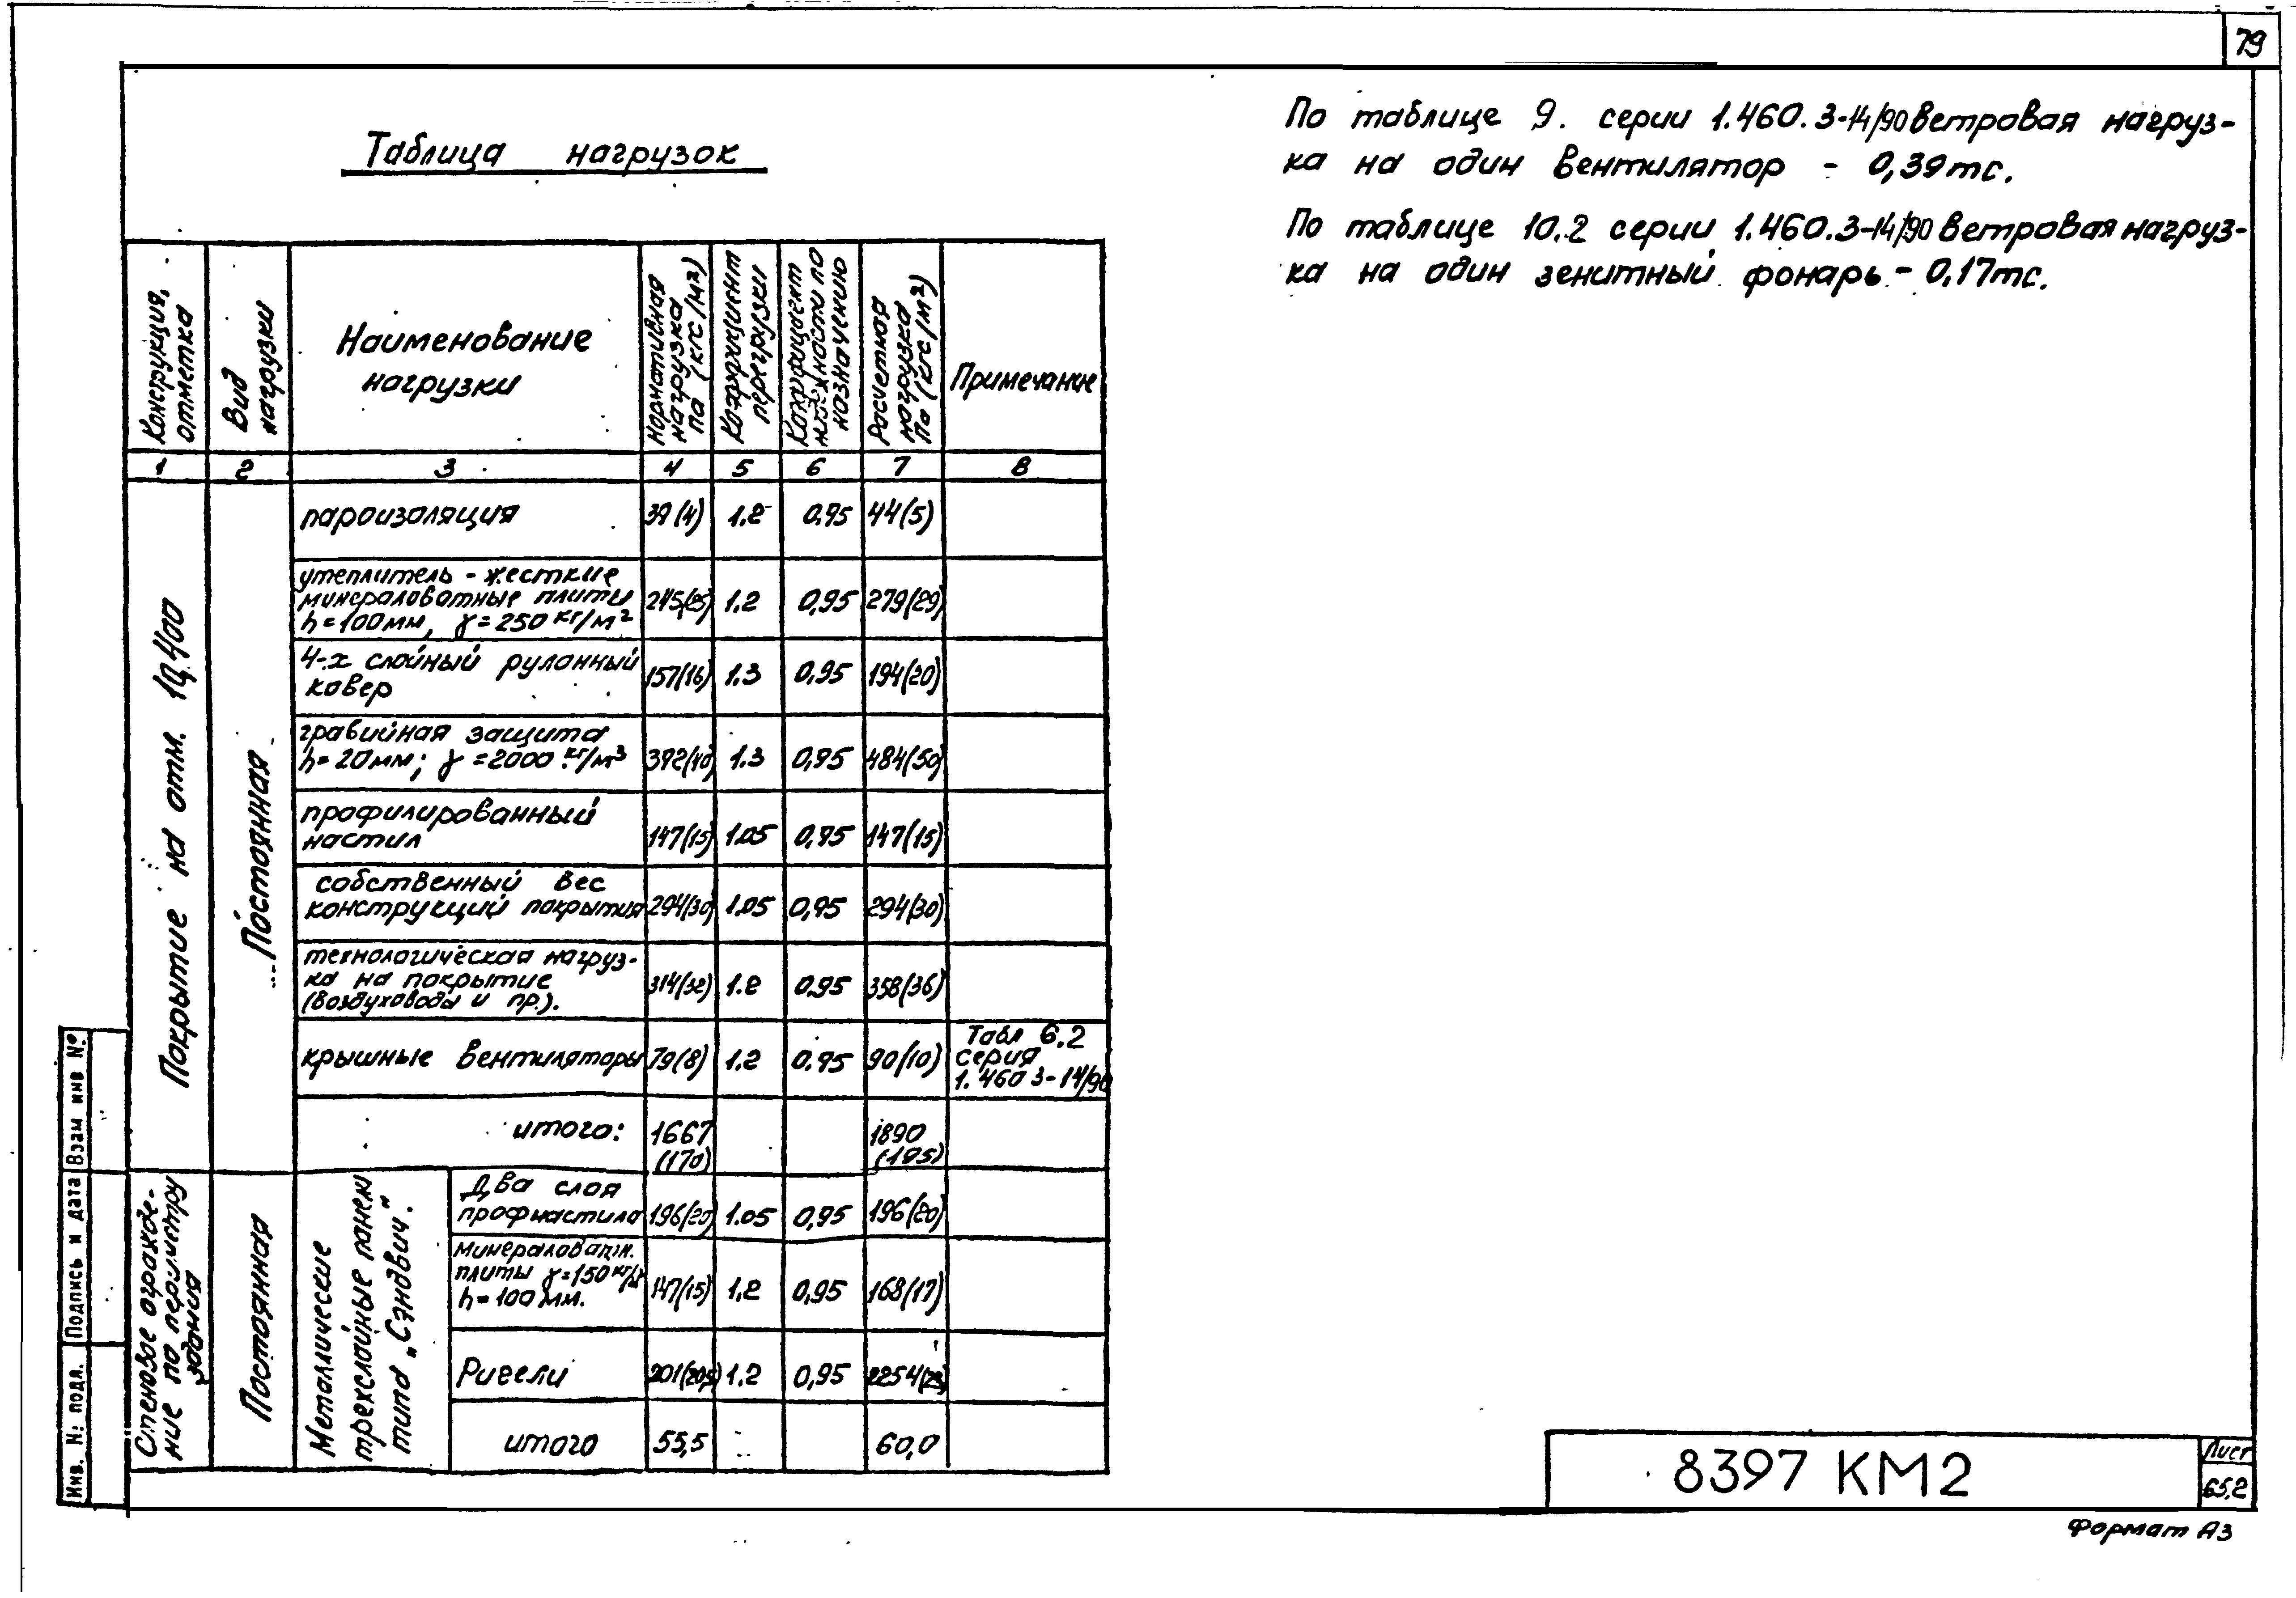 79
Таблица нагрузок
По таблице 9. серии 1.460.3-14/90 ветровая нагруз-
ка на один вентилятор - 0,39тс.
По таблице 10.2 серии 1.460.3-14/90 ветровая нагруз-
ка на один зенитный фонарь - 0,17тс.
Конструкция,
отметка
Вид
нагрузки
Наименование
нагрузки
Нормативная
нагрузка
Па (кгс/м²)
Коэффициент
перегрузки
Коэффициент
надежности по
назначению
Расчетная
нагрузка
Па (кгс/м²)
Примечание
1 2 3 4 5 6 7 8
Покрытие на отм. 10,400
Постоянная
пароизоляция 39(4) 1.2 0,95 44(5)
утеплитель - жесткие
минераловатные плиты
h=100мм, γ=250 кг/м² 245(25) 1.2 0,95 279(29)
4-х слойный рулонный
ковер 157(16) 1.3 0,95 194(20)
гравийная защита
h=20мм; γ=2000 кг/м³ 392(40) 1.3 0,95 484(50)
профилированный
настил 147(15) 1.05 0,95 147(15)
собственный вес
конструкций покрытия 294(30) 1.05 0,95 294(30)
технологическая нагруз-
ка на покрытие
(воздуховоды и пр.). 314(32) 1.2 0,95 358(36)
крышные вентиляторы 79(8) 1.2 0.95 90(10)
Табл 6.2
серия
1.460 3-14/90
итого: 1667
(170)
1890
(195)
Стеновое огражде-
ние по периметру
здания
Постоянная
Металлические
трехслойные панели
типа „Сэндвич".
Два слоя
профнастила 196(20) 1.05 0,95 196(20)
минераловатн.
плиты γ=150 кг/м³
h=100мм. 147(15) 1.2 0,95 168(17)
Ригели 201(20,5) 1.2 0,95 2254(23)
итого 55,5 60,0
Взам инв №
Подпись и дата
Инв. № подл.
8397 КМ2
Лист
65.2
Формат А3